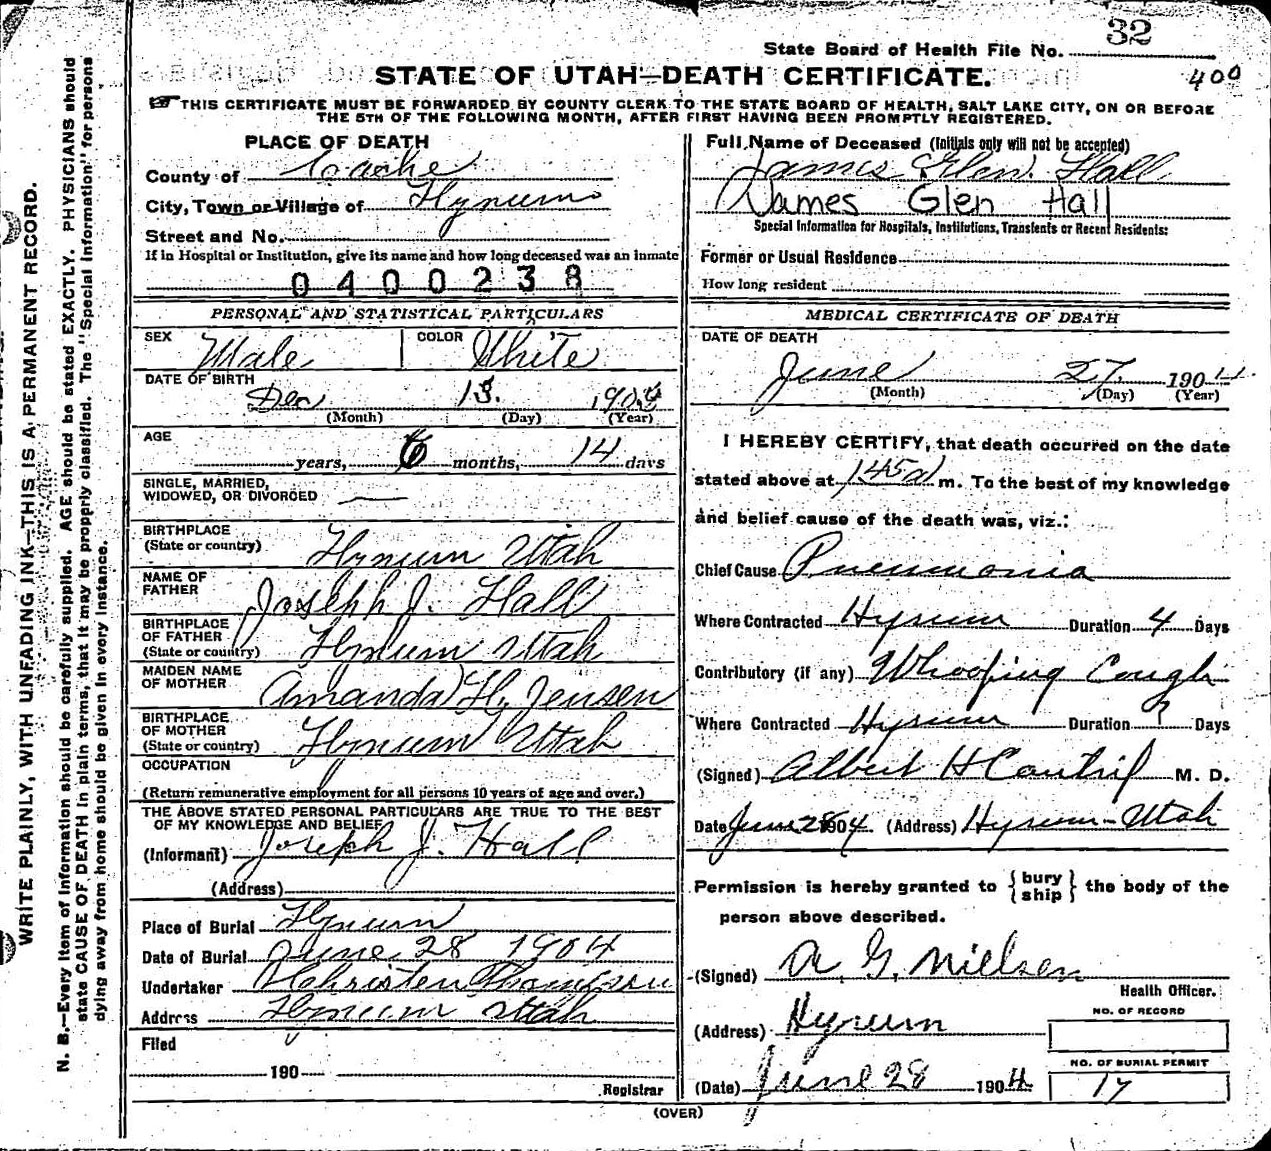 32
State Board of Health File No.
STATE OF UTAH—DEATH CERTIFICATE.
400
THIS CERTIFICATE MUST BE FORWARDED BY COUNTY CLERK TO THE STATE BOARD OF HEALTH, SALT LAKE CITY, ON OR BEFORE
THE 5TH OF THE FOLLOWING MONTH, AFTER FIRST HAVING BEEN PROMPTLY REGISTERED.
WRITE PLAINLY, WITH UNFADING INK—THIS IS A PERMANENT RECORD.
N. B.—Every item of information should be carefully supplied. AGE should be stated EXACTLY. PHYSICIANS should
state CAUSE OF DEATH in plain terms, that it may be properly classified. The "Special Information" for persons
dying away from home should be given in every instance.
PLACE OF DEATH
County of Cache
City, Town or Village of Hyrum
Street and No.
If in Hospital or Institution, give its name and how long deceased was an inmate
0400238
PERSONAL AND STATISTICAL PARTICULARS
SEX Male COLOR White
DATE OF BIRTH
Dec 13. 190
(Month) (Day) (Year)
AGE
years, 6 months, 14 days
SINGLE, MARRIED,
WIDOWED, OR DIVORCED —
BIRTHPLACE
(State or country) Hyrum Utah
NAME OF
FATHER Joseph J. Hall
BIRTHPLACE
OF FATHER
(State or country) Hyrum Utah
MAIDEN NAME
OF MOTHER Amanda H. Jensen
BIRTHPLACE
OF MOTHER
(State or country) Hyrum Utah
OCCUPATION
(Return remunerative employment for all persons 10 years of age and over.)
THE ABOVE STATED PERSONAL PARTICULARS ARE TRUE TO THE BEST
OF MY KNOWLEDGE AND BELIEF
(Informant) Joseph J. Hall
(Address)
Place of Burial Hyrum
Date of Burial June 28 1904
Undertaker Christen Thompson
Address Hyrum Utah
Filed
190
Registrar
Full Name of Deceased (Initials only will not be accepted)
James Glen Hall
James Glen Hall
Special Information for Hospitals, Institutions, Transients or Recent Residents:
Former or Usual Residence
How long resident
MEDICAL CERTIFICATE OF DEATH
DATE OF DEATH
June 27 1904
(Month) (Day) (Year)
I HEREBY CERTIFY, that death occurred on the date
stated above at 145 a m. To the best of my knowledge
and belief cause of the death was, viz.:
Chief Cause Pneumonia
Where Contracted Hyrum Duration 4 Days
Contributory (if any) Whooping Cough
Where Contracted Hyrum Duration ? Days
(Signed) Albert H M. D.
Date June 28 1904. (Address) Hyrum - Utah
Permission is hereby granted to { bury ship } the body of the
person above described.
(Signed) A. G. Nielsen
Health Officer.
(Address) Hyrum
NO. OF RECORD
NO. OF BURIAL PERMIT
(Date) June 28 1904 17
(OVER)